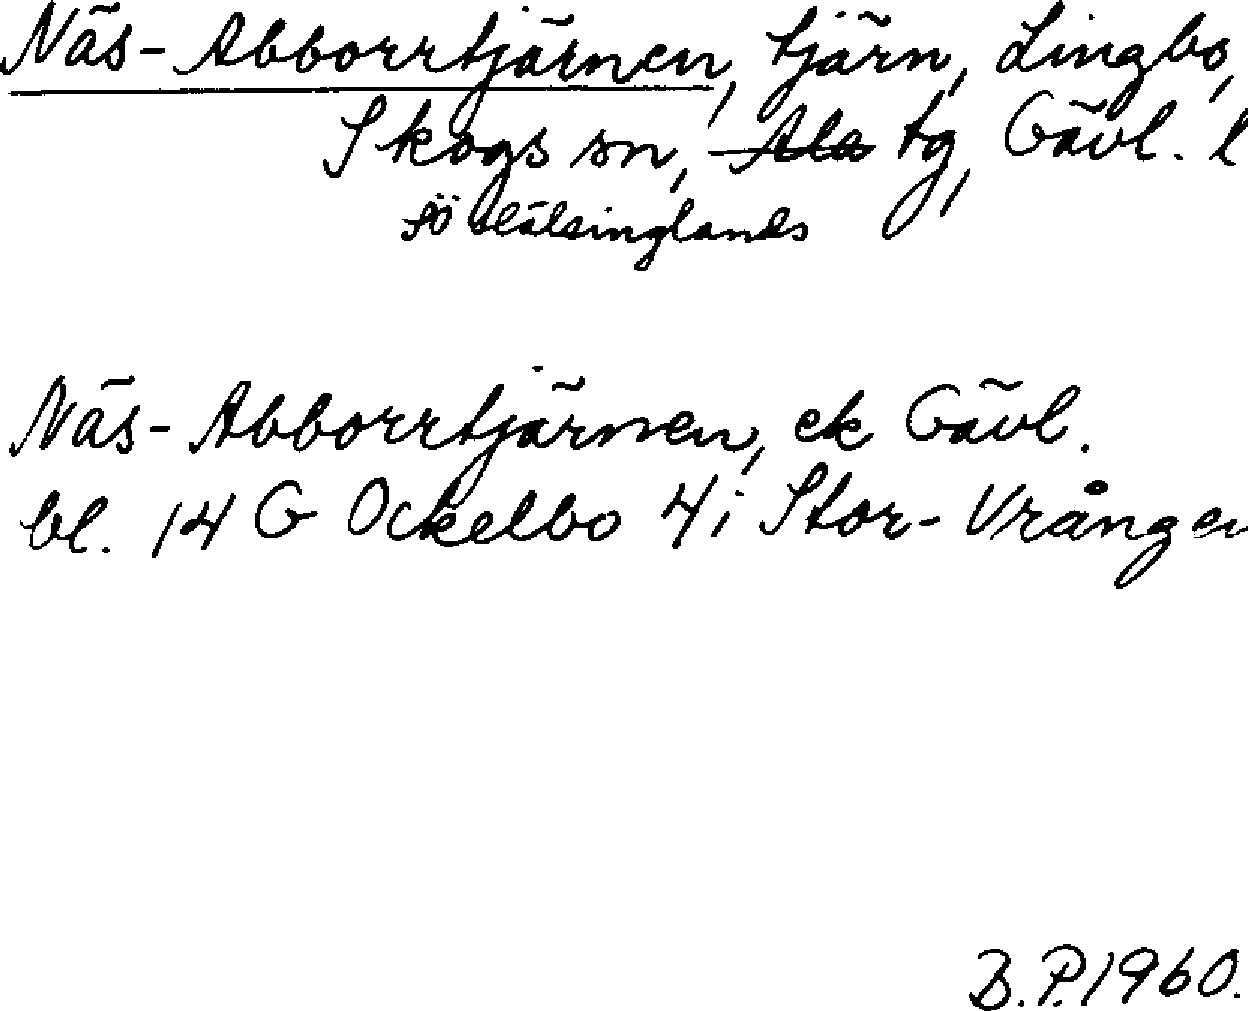 Näs-Abborrtjärnen, tjärn, Lingbo,
Skogs sn, Ala tg, Gävl. l
sö Hälsinglands
Näs-Abborrtjärnen, ek Gävl.
bl. 14 G Ockelbo 4i Stor-Vrången
B.P. 1960.